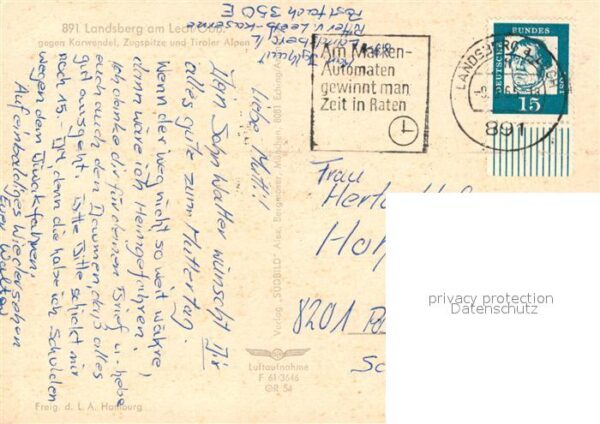 891 Landsberg am Lech Obb.
gegen Karwendel, Zugspitze und Tiroler Alpen
Ritter v. Leeb-Kaserne
Postfach 350 E
Liebe Mutti!
Dein Sohn Walter wünscht Dir
alles gute zum Muttertag.
Wenn der Weg nicht so weit währe,
dann wäre ich Heimgefahren.
Ich danke dir für deinen Brief u. hebe
auch den Daumen, daß alles
gut ausgeht. Bitte Bitte schickt mir
noch 15.- DM, denn die habe ich Schulden
wegen dem Biwakfahren.
Auf ein baldiges Wiedersehen
Euer Walter
Verlag "SÜDBILD"
Luftaufnahme
F 61-3646
GR 54
Freig. d. L. A. Hamburg
Am Marken-
Automaten
gewinnt man
Zeit in Raten
LANDSBERG
891
DEUTSCHE BUNDES
15
1961
Frau
8201
privacy protection
Datenschutz